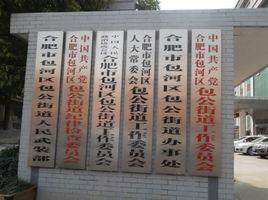 中国共产党
合肥市包河区
包公街道工作委员会
合肥市包河区包公街道办事处
合肥市包河区
人大常委会
包公街道工作委员会
合肥市包河区包公街道工作委员会
中国共产党
合肥市包河区
包公街道纪律检查工作委员会
合肥市包河区包公街道人民武装部